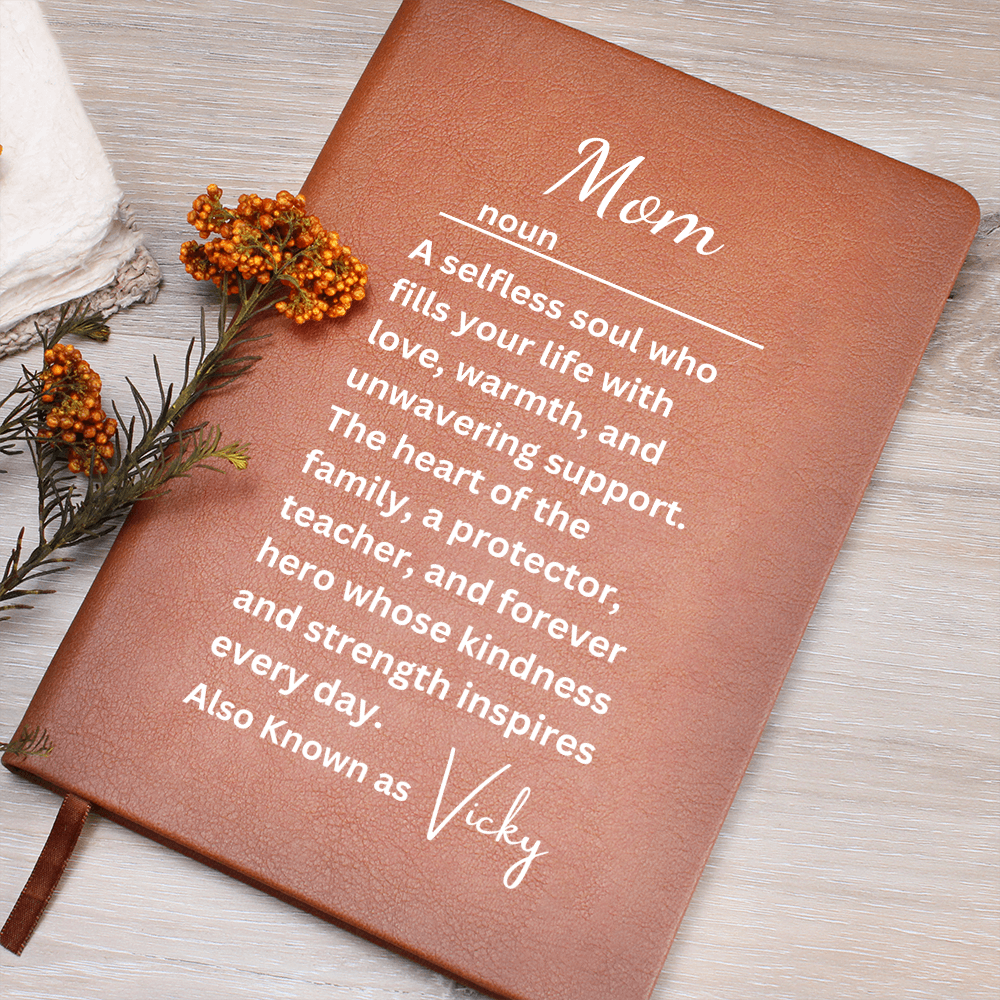 Mom
noun
A selfless soul who
fills your life with
love, warmth, and
unwavering support.
The heart of the
family, a protector,
teacher, and forever
hero whose kindness
and strength inspires
every day.
Also Known as Vicky